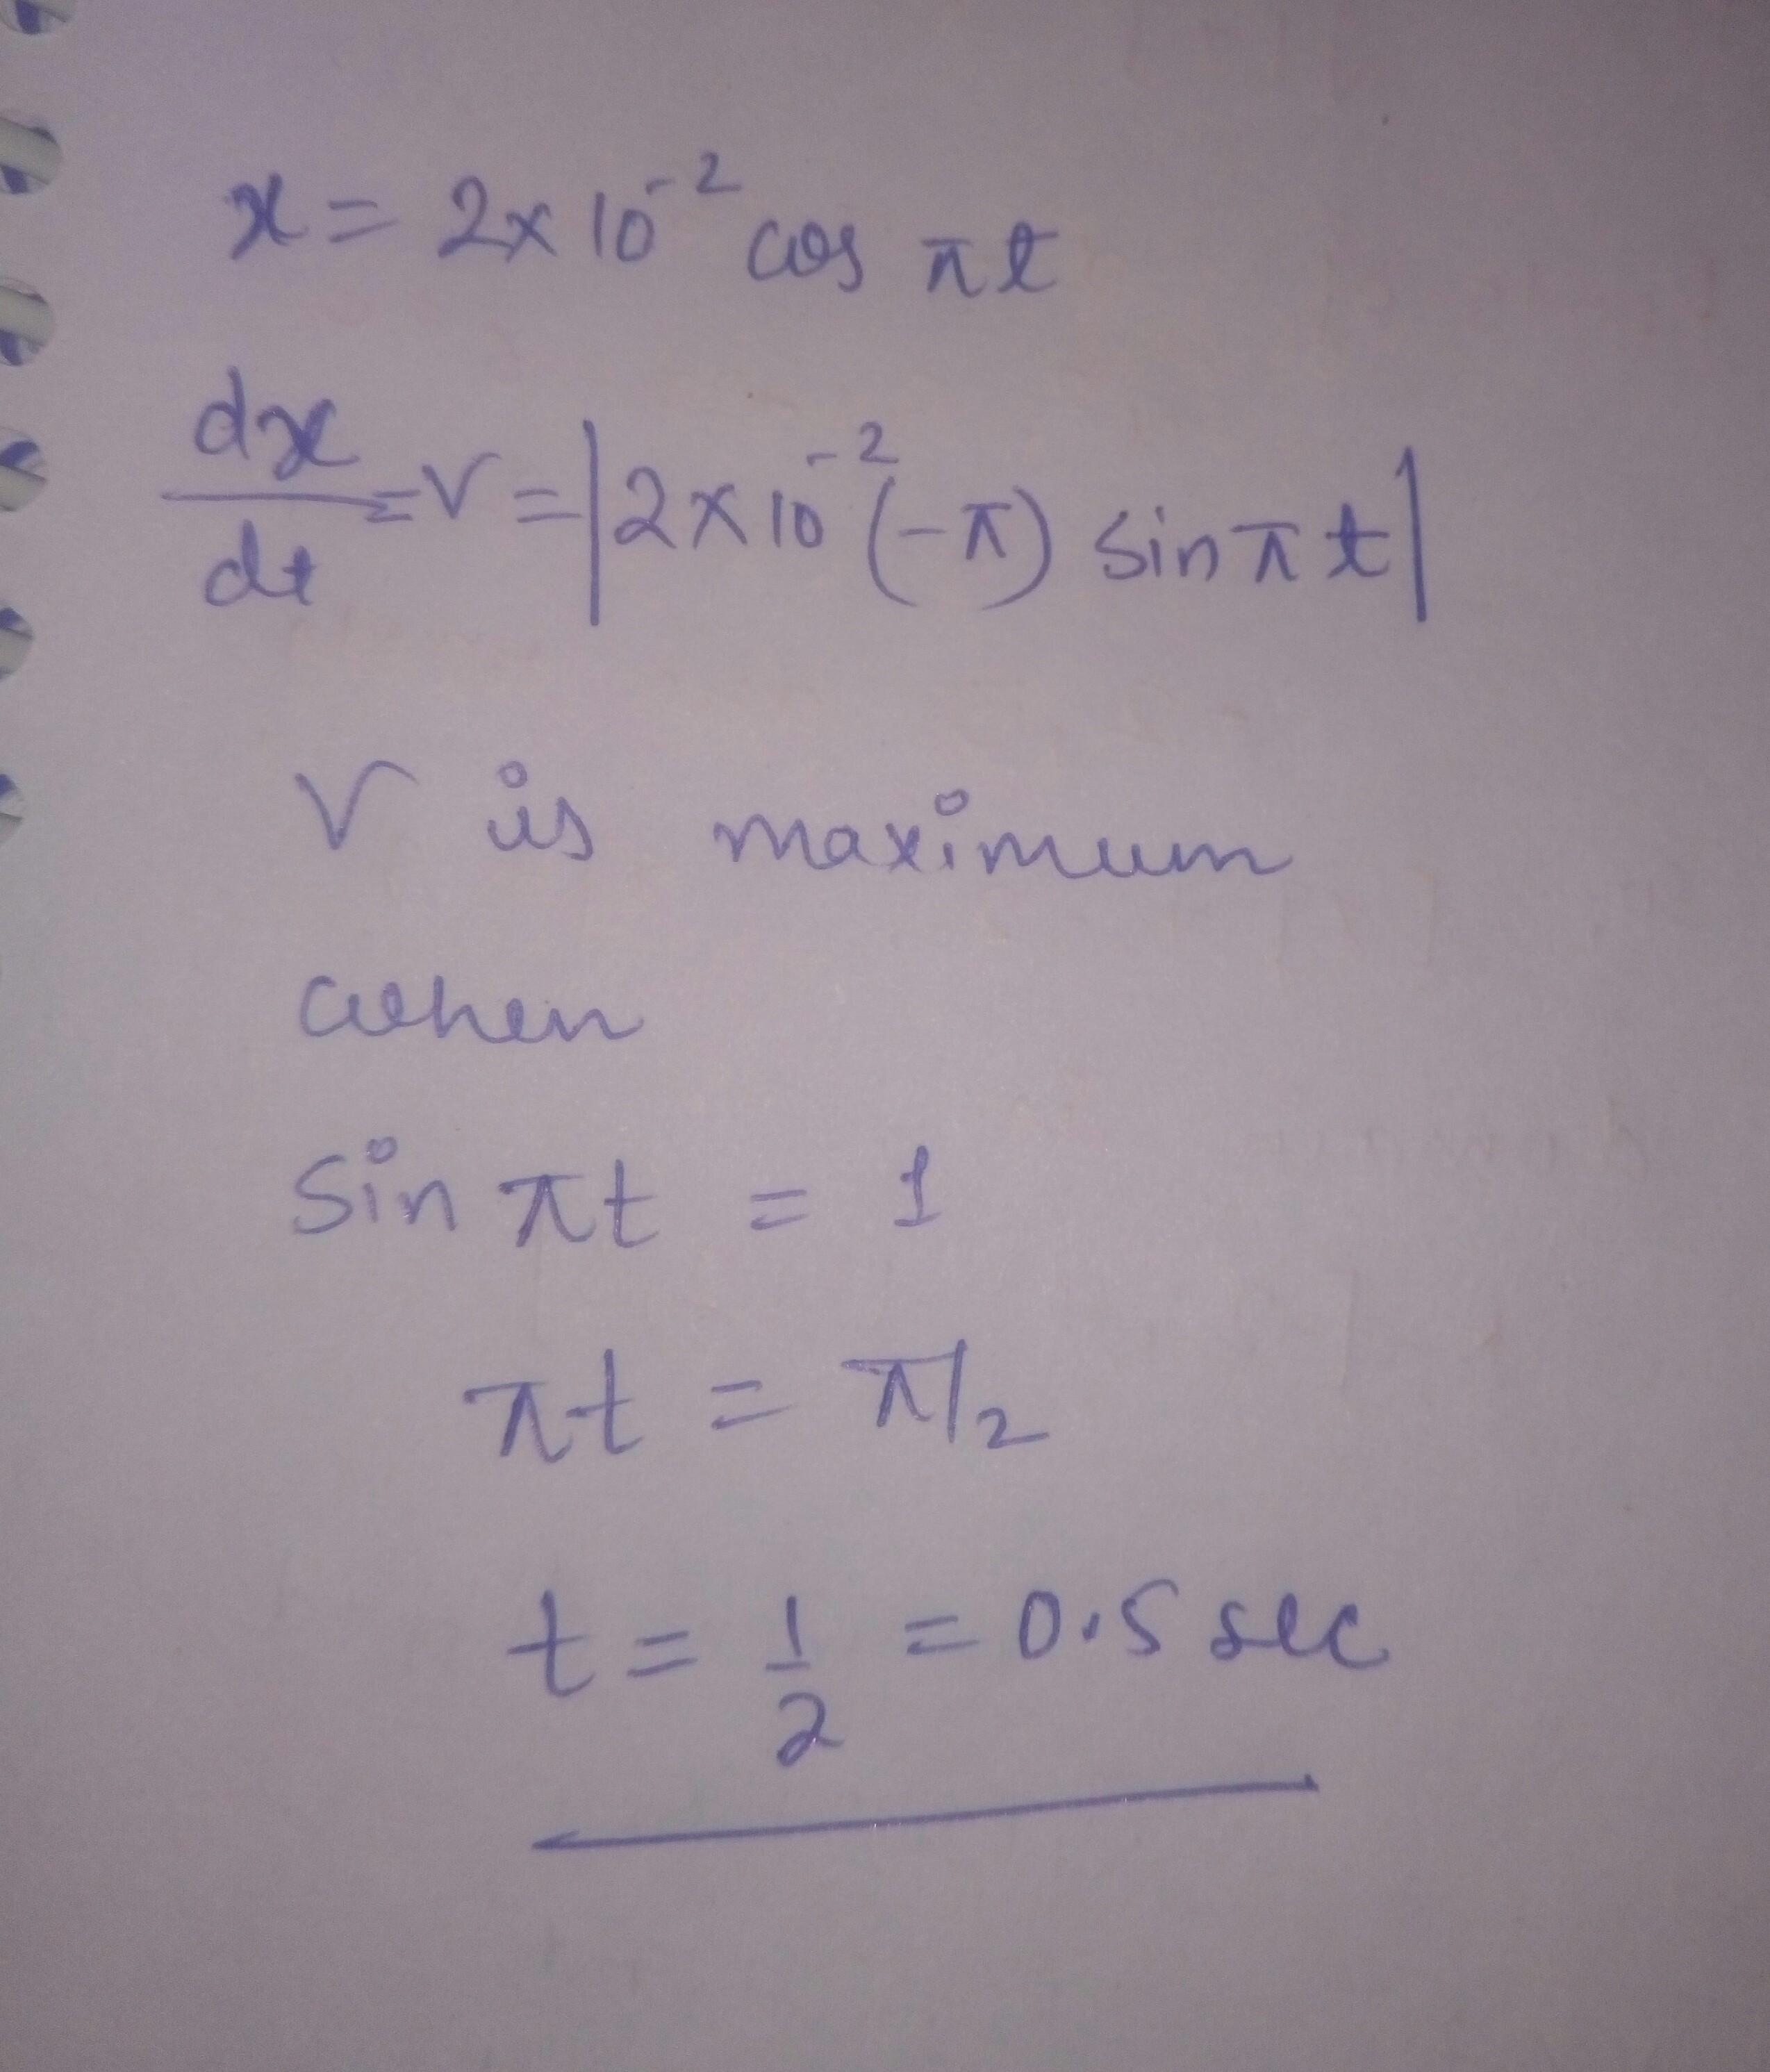 x = 2x10⁻² cos πt
dx/dt = V = |2x10⁻²(-π) sin πt|
V is maximum
when
Sin πt = 1
πt = π/2
t = 1/2 = 0.5 sec